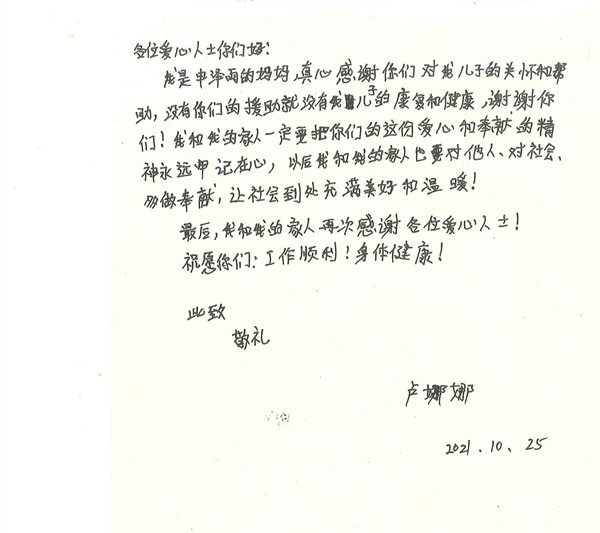 各位爱心人士你们好:
我是申泽雨的妈妈,真心感谢你们对我儿子的关怀和帮
助,没有你们的援助就没有我儿子的康复和健康,谢谢你
们!我和我的家人一定要把你们的这份爱心和奉献的精
神永远牢记在心,以后我和我的家人也要对他人、对社会、
多做奉献,让社会到处充满美好和温暖!
最后,我和我的家人再次感谢各位爱心人士!
祝愿你们:工作顺利!身体健康!
此致
敬礼
卢娜娜
2021.10、25